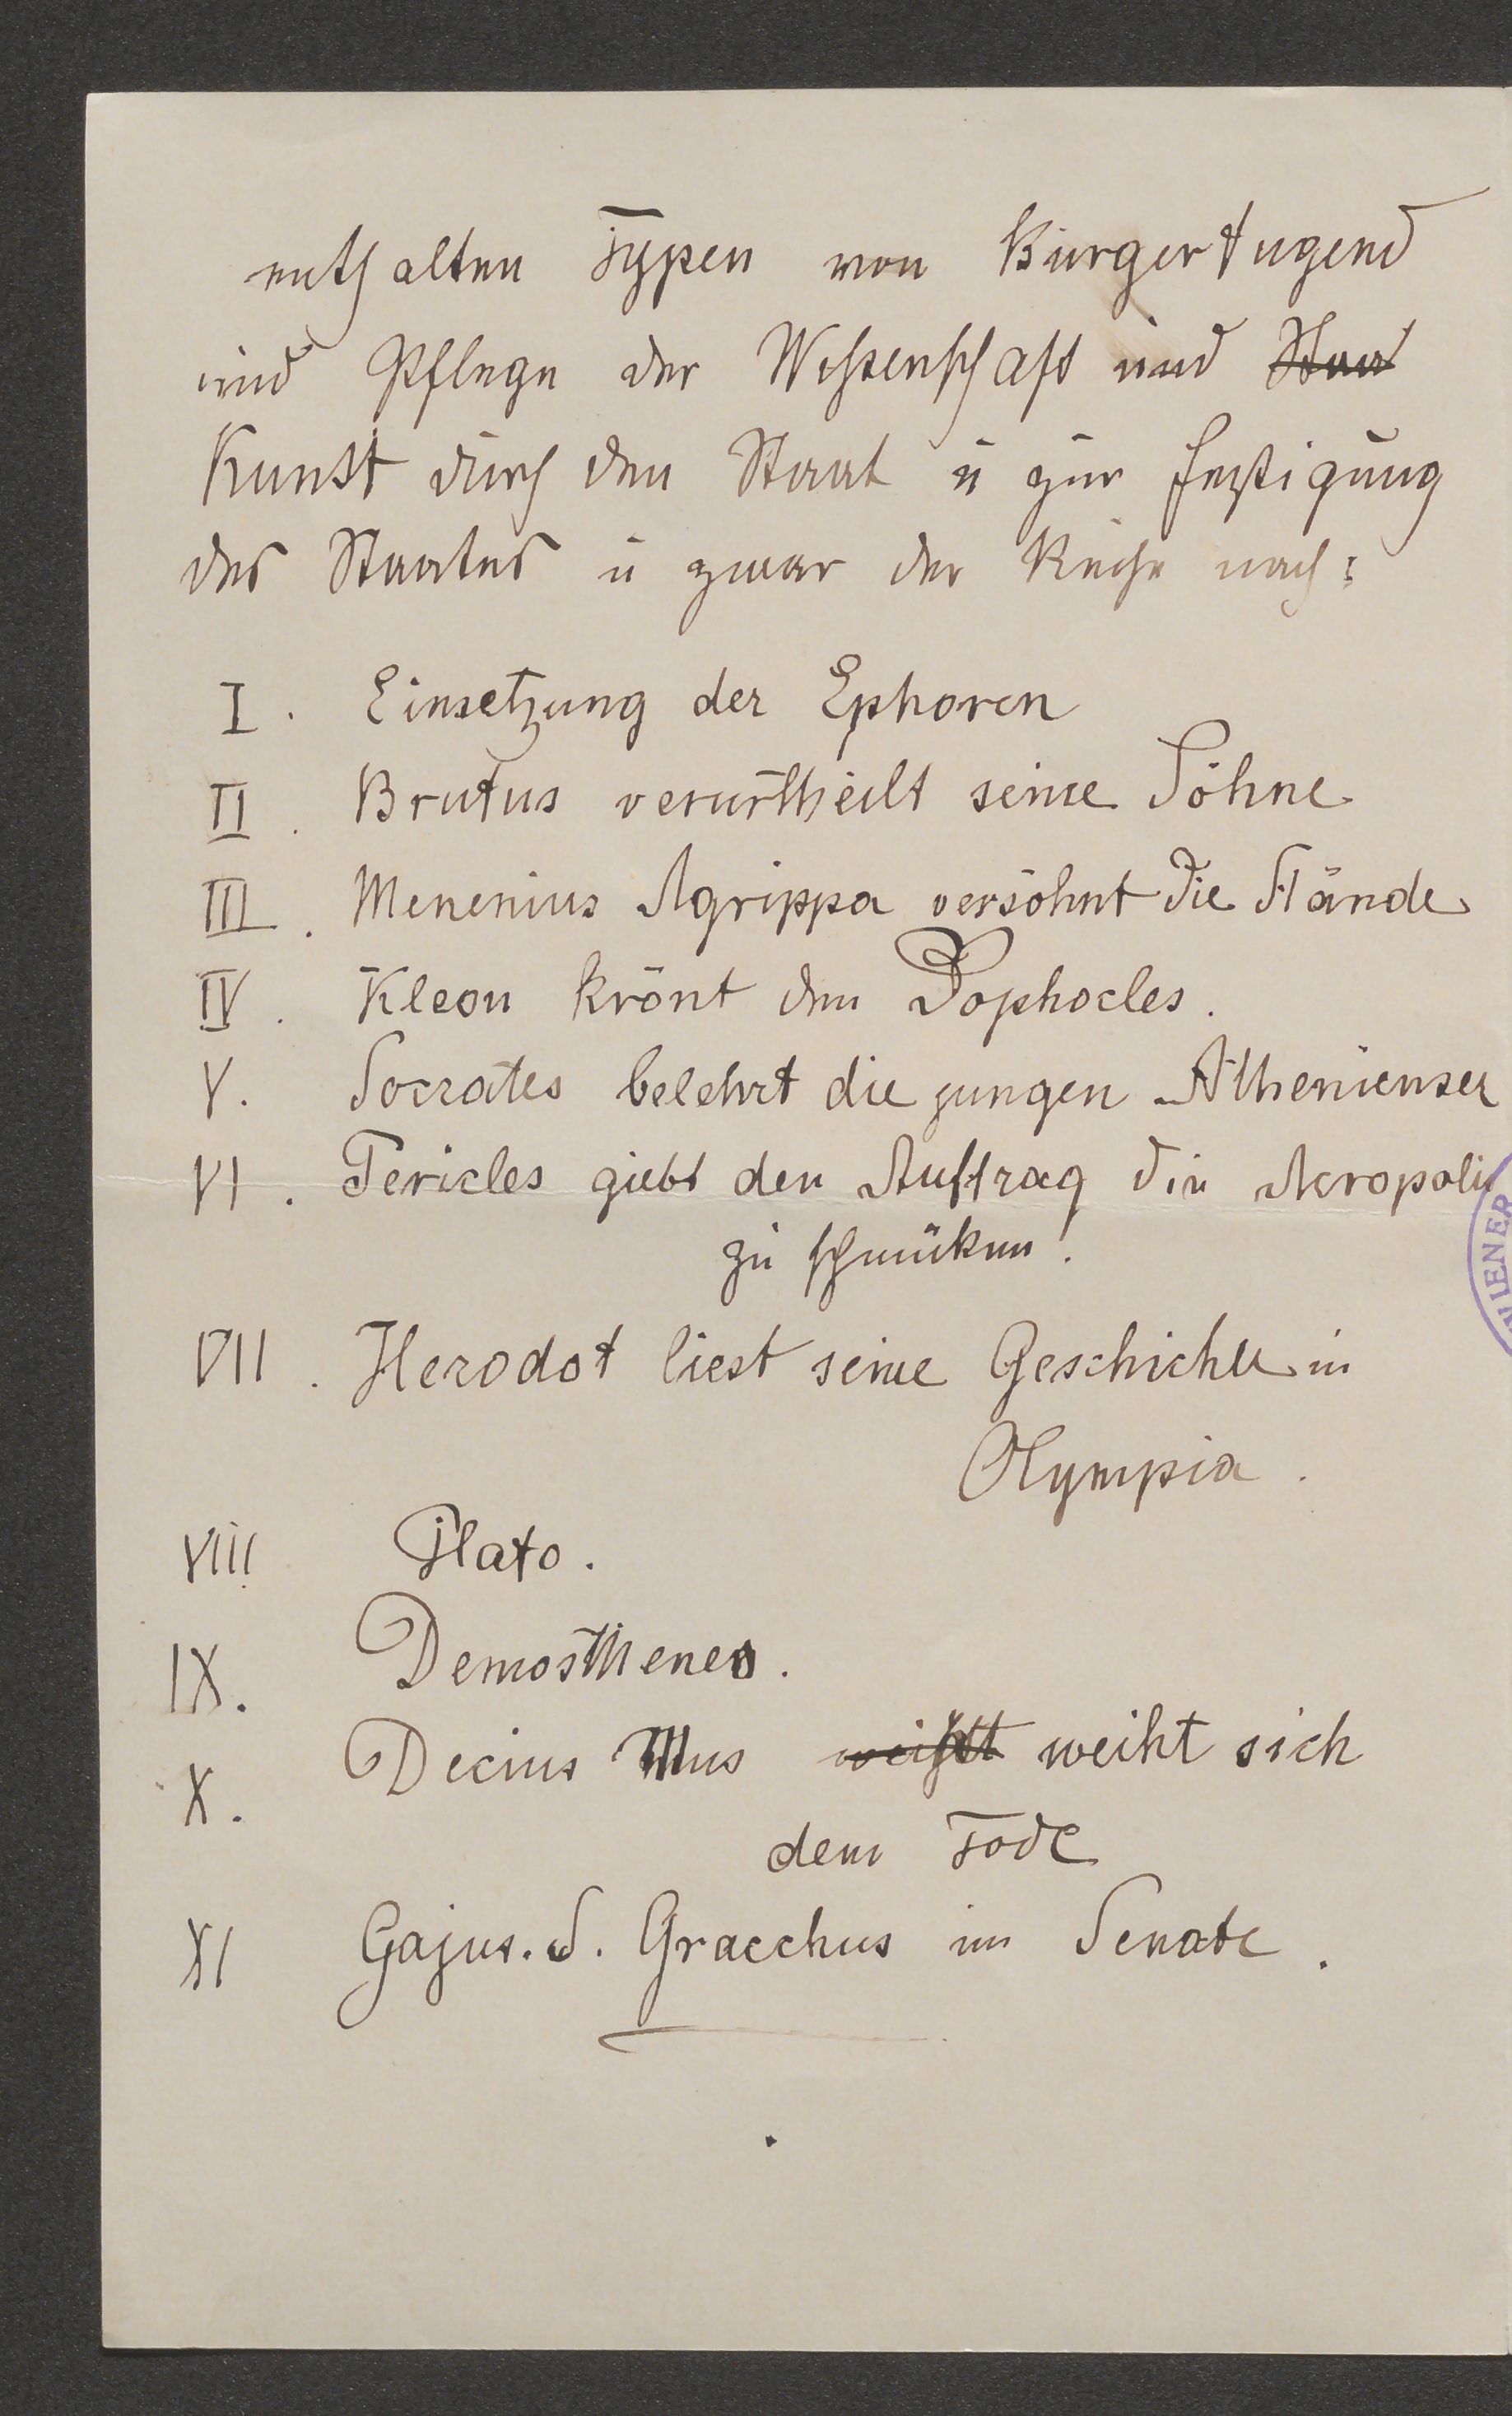 enthalten Typen von Bürgertugend
und Pflege der Wissenschaft und Staa
Kunst durch den Staat u zur Festigung
des Staates u zwar der Reihe nach:
I. Einsetzung der Ephoren
II. Brutus verurtheilt seine Söhne
III. Menenius Agrippa versöhnt die Stände
IV. Kleon krönt den Sophocles.
V. Socrates belehrt die jungen Athenienser
VI. Pericles giebt den Auftrag die Acropolis
zu schmüken.
VII. Herodot liest seine Geschichte in
Olympia.
VIII Plato.
IX. Demosthenes.
X. Decius Mus weiht weiht sich
dem Tode
XI Gajus. S. Gracchus im Senate.
WIENER